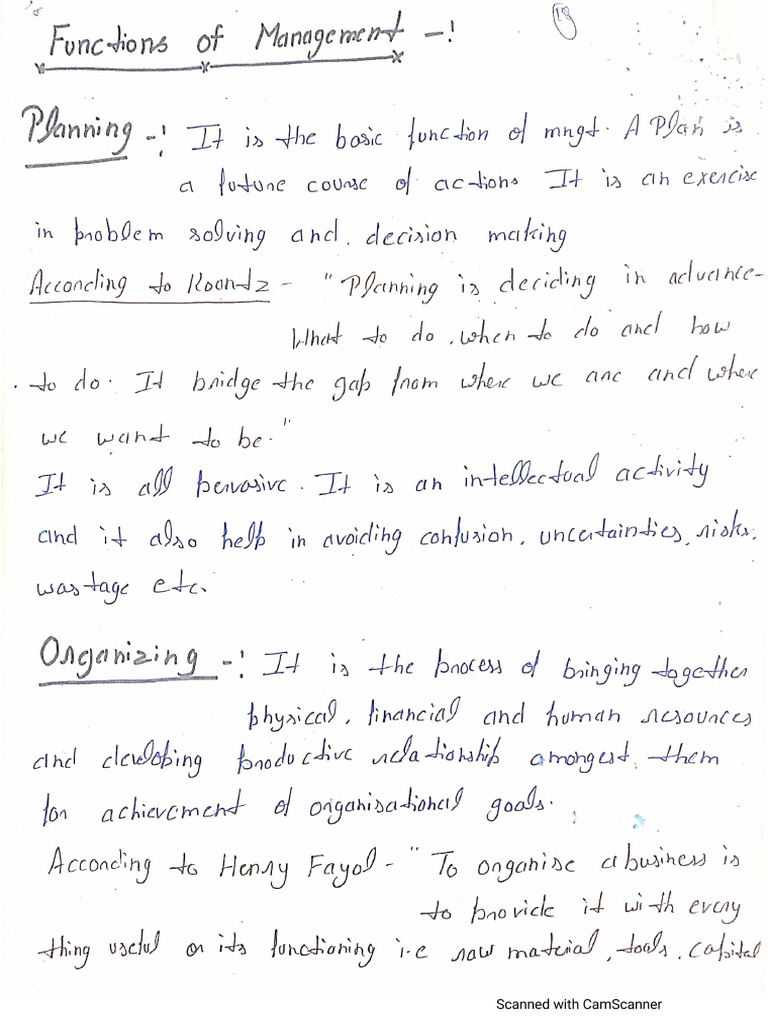 18
Functions of Management -:
Planning -: It is the basic function of mngt. A Plan is
a future course of actions It is an exercise
in problem solving and decision making
According to Koontz - "Planning is deciding in advance-
What to do, when to do and how
to do. It bridge the gap from where we are and where
we want to be."
It is all pervasive. It is an intellectual activity
and it also help in avoiding confusion, uncertainties, risks,
wastage etc.
Organizing -: It is the process of bringing together
physical, financial and human resources
and developing productive relationship amongest them
for achievement of organisational goals.
According to Henry Fayol - "To organise a business is
to provide it with every
thing useful or its functioning i.e raw material, tools, capital
Scanned with CamScanner